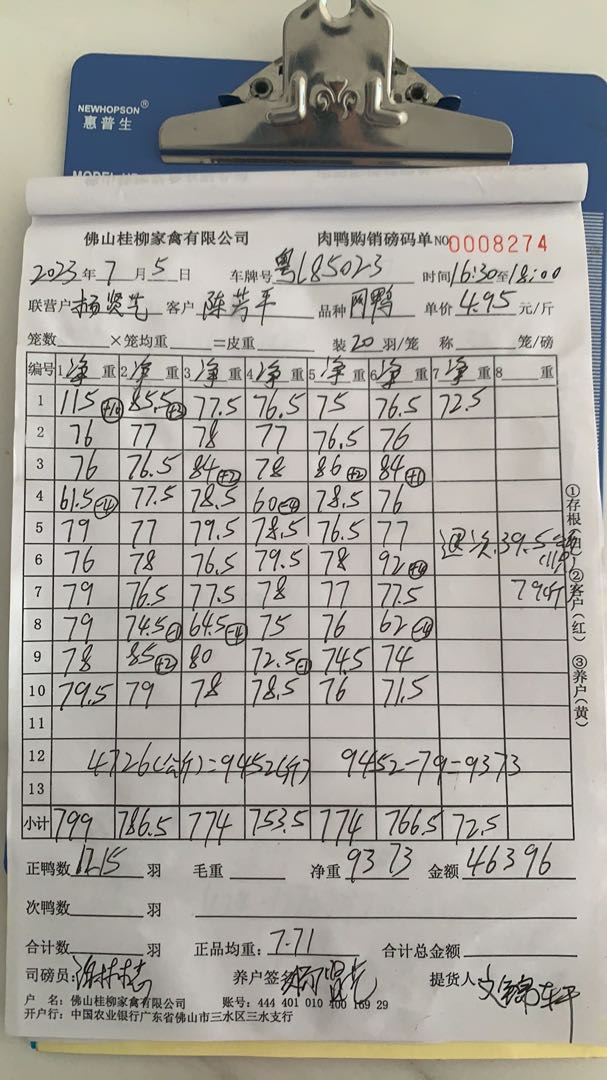 NEWHOPSON®
惠普生
佛山桂柳家禽有限公司 肉鸭购销磅码单 NO 0008274
2023年7月5日 车牌号 粤L85023 时间 16:30至18:00
联营户 杨贤艺 客户 陈芳平 品种 网鸭 单价 4.95 元/斤
笼数 ×笼均重 =皮重 装 20 羽/笼 称 笼/磅
编号 1净重 2净重 3净重 4净重 5净重 6净重 7净重 8 重
1 115 85.5 +2 77.5 76.5 75 76.5 72.5
2 76 77 78 77 76.5 76
3 76 76.5 84 +2 78 86 +2 84 +1
4 61.5 -4 77.5 78.5 60 -4 78.5 76
5 79 77 79.5 78.5 76.5 77
6 76 78 76.5 79.5 78 92 +4 退次39.5
7 79 76.5 77.5 78 77 77.5 79斤
8 79 74.5 -1 64.5 -4 75 76 62 -4
9 78 85 +2 80 72.5 -1 74.5 74
10 79.5 79 78 78.5 76 71.5
11
12 4726(公斤)=9452(斤) 9452-79=9373
13
小计 799 786.5 774 753.5 774 766.5 72.5
正鸭数 1215 羽 毛重 净重 9373 金额 46396
次鸭数 羽
合计数 羽 正品均重: 7.71 合计总金额
司磅员: 养户签名 提货人
户 名: 佛山桂柳家禽有限公司 账号: 444 401 010 400 169 29
开户行: 中国农业银行广东省佛山市三水区三水支行
①存根(白)②客户(红)③养户(黄)